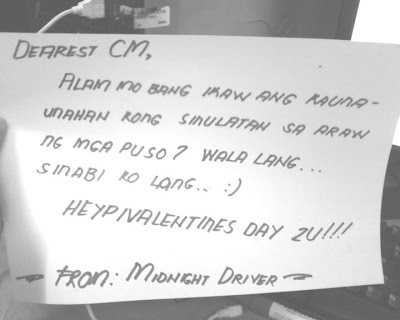 DEAREST CM,
ALAM MO BANG IKAW ANG KAUNA-
UNAHAN KONG SINULATAN SA ARAW
NG MGA PUSO? WALA LANG...
SINABI KO LANG.. :)
HEYPIVALENTINES DAY ZU!!!
FROM: MIDNIGHT DRIVER